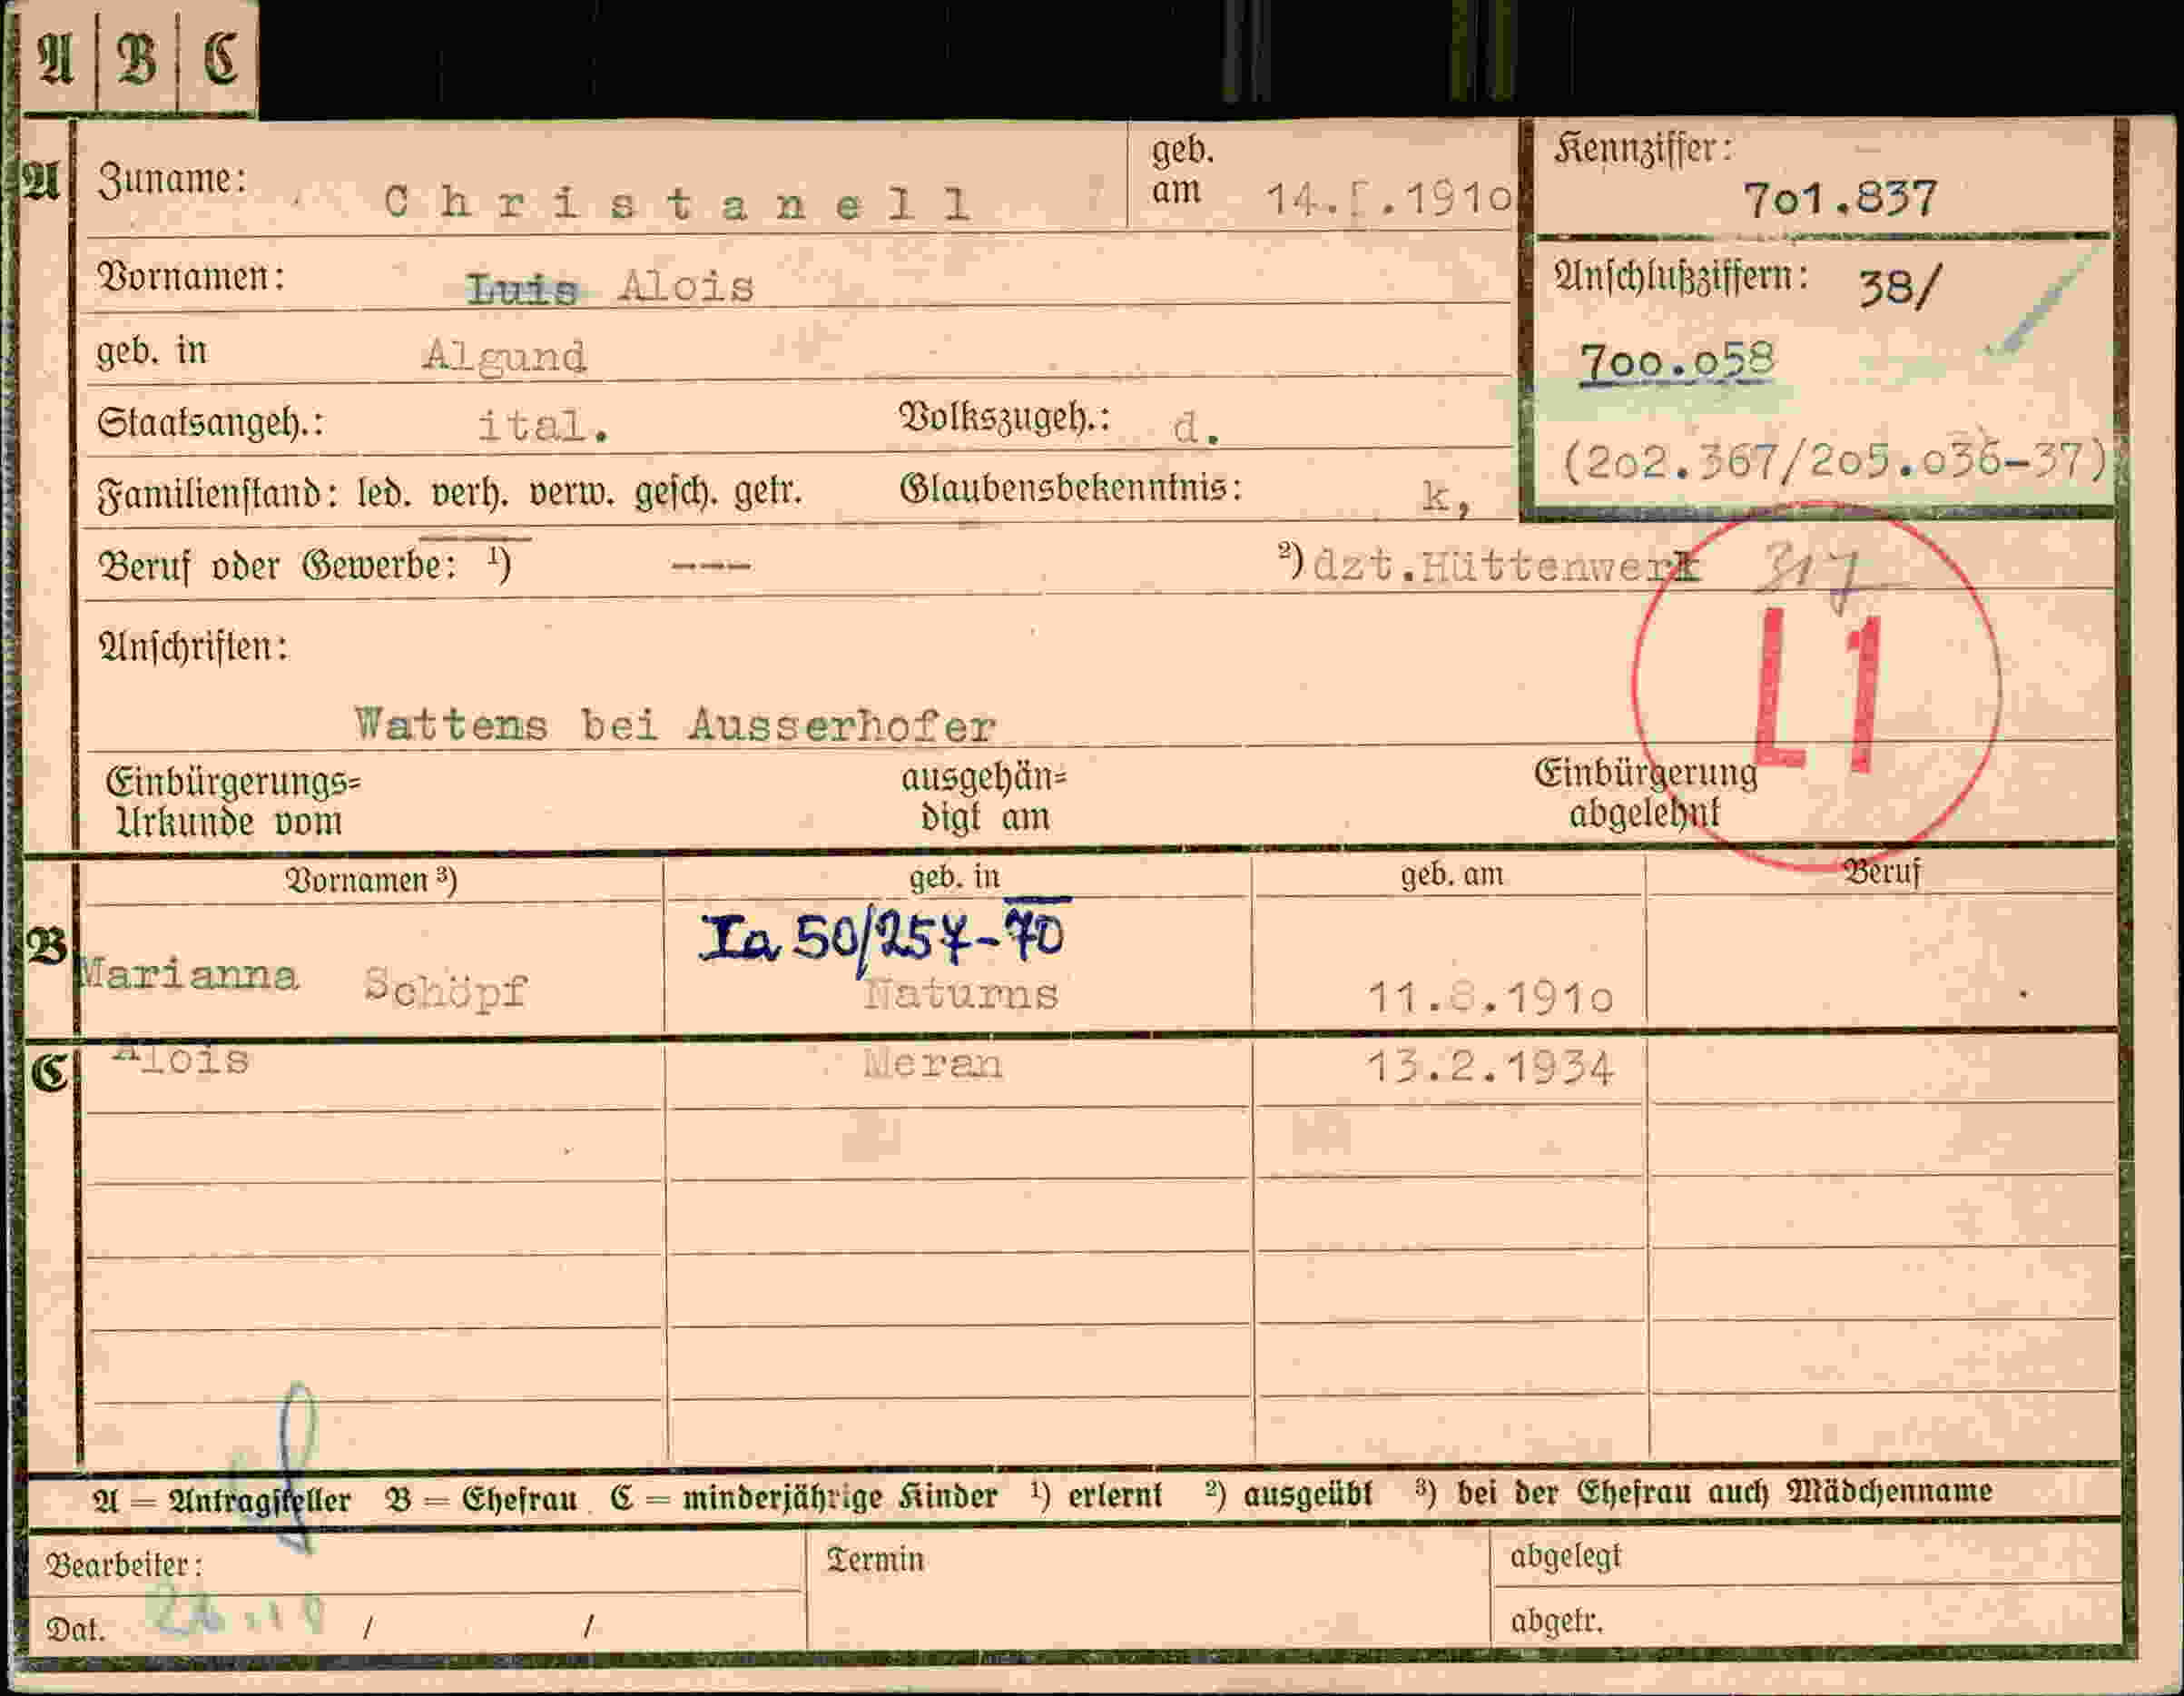 A B C
A Zuname: Christanell geb. am 14. .1910 Kennziffer: 701.837
Vornamen: Luis Alois Anschlußziffern: 38/
geb. in Algund 700.058
Staatsangeh.: ital. Volkszugeh.: d. (202.367/205.036-37)
Familienstand: led. verh. verw. gesch. getr. Glaubensbekenntnis: k,
Beruf oder Gewerbe: ¹) --- ²) dzt.Hüttenwerk 317
L1
Anschriften:
Wattens bei Ausserhofer
Einbürgerungs= ausgehän= Einbürgerung
Urkunde vom digt am abgelehnt
Vornamen ³) geb. in geb. am Beruf
Ia 50/257-70
B Marianna Schöpf Naturns 11.8.1910
C Alois Meran 13.2.1934
A = Antragsteller B = Ehefrau C = minderjährige Kinder ¹) erlernt ²) ausgeübt ³) bei der Ehefrau auch Mädchenname
Bearbeiter: Termin abgelegt
Dat. / / abgetr.